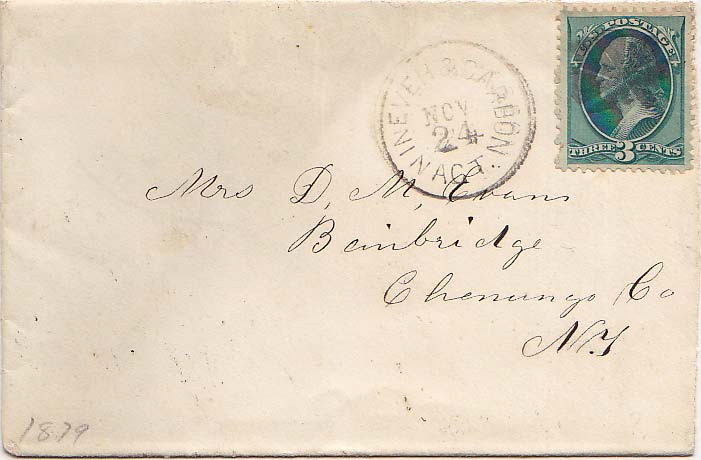 U.S. POSTAGE
THREE 3 CENTS
NINEVEH & CARBON. N. ACT.
NOV
24
Mrs D. M. Evans
Bainbridge
Chenango Co
N.Y
1879